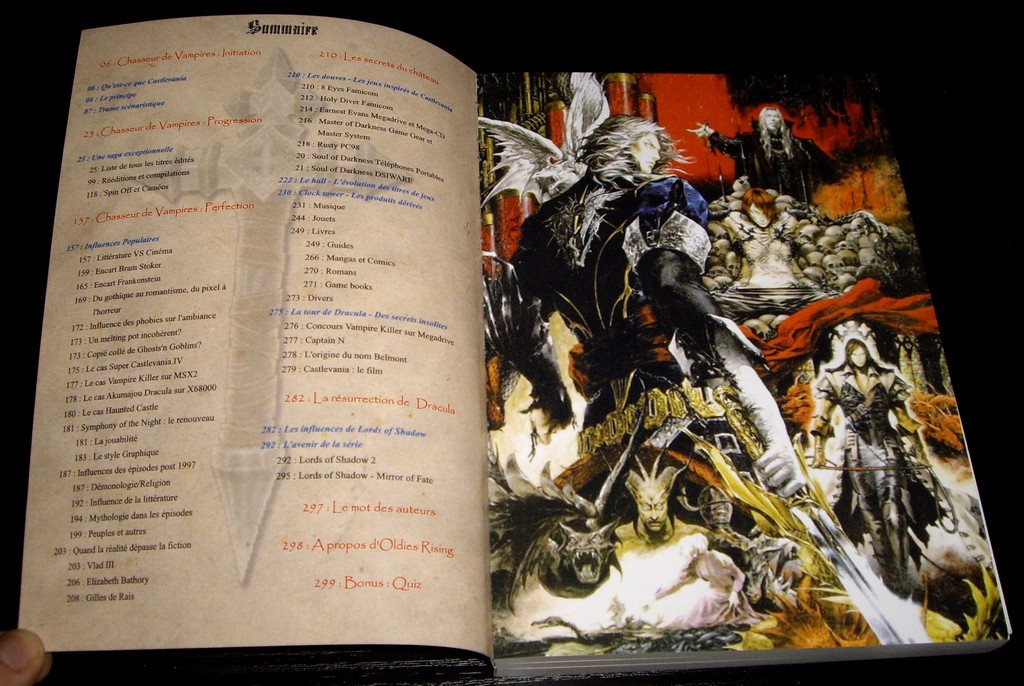 Sommaire
06 : Chasseur de Vampires : Initiation
06 : Qu'est-ce que Castlevania
06 : Le principe
07 : Trame scénaristique
25 : Chasseur de Vampires : Progression
25 : Une saga exceptionnelle
25: Liste de tous les titres édités
99 : Rééditions et compilations
118 : Spin Off et Caméos
157 : Chasseur de Vampires : Perfection
157 : Influences Populaires
157 : Littérature VS Cinéma
159 : Encart Bram Stoker
165 : Encart Frankenstein
169 : Du gothique au romantisme, du pixel à
l'horreur
172 : Influence des phobies sur l'ambiance
173 : Un melting pot incohérent?
173 : Copié collé de Ghosts'n Goblins?
175 : Le cas Super Castlevania.IV
177 : Le cas Vampire Killer sur MSX2
178 : Le cas Akumajou Dracula sur X68000
180 : Le cas Haunted Castle
181 : Symphony of the Night : le renouveau
181 : La jouabilité
183 : Le style Graphique
187 : Influences des épisodes post 1997
187 : Démonologie/Religion
192 : Influence de la littérature
194 : Mythologie dans les épisodes
199 : Peuples et autres
203 : Quand la réalité dépasse la fiction
203 : Vlad III
206 : Elizabeth Bathory
208 : Gilles de Rais
210 : Les secrets du château
210 : Les douves - Les jeux inspirés de Castlevania
210 : 8 Eyes Famicom
212 : Holy Diver Famicom
214 : Earnest Evans Megadrive et Mega-CD
216 : Master of Darkness Game Gear et
Master System
218 : Rusty PC98
20 : Soul of Darkness Téléphones Portables
21 : Soul of Darkness DSIWARE
222 : Le hall - L'évolution des titres de jeux
230 : Clock tower - Les produits dérivés
231 : Musique
244 : Jouets
249 : Livres
249 : Guides
266 : Mangas et Comics
270 : Romans
271 : Game books
273 : Divers
275 : La tour de Dracula - Des secrets insolites
276 : Concours Vampire Killer sur Megadrive
277 : Captain N
278 : L'origine du nom Belmont
279 : Castlevania : le film
282 : La résurrection de Dracula
282 : Les influences de Lords of Shadow
292 : L'avenir de la série
292 : Lords of Shadow 2
295 : Lords of Shadow - Mirror of Fate
297 : Le mot des auteurs
298 : A propos d'Oldies Rising
299 : Bonus : Quiz